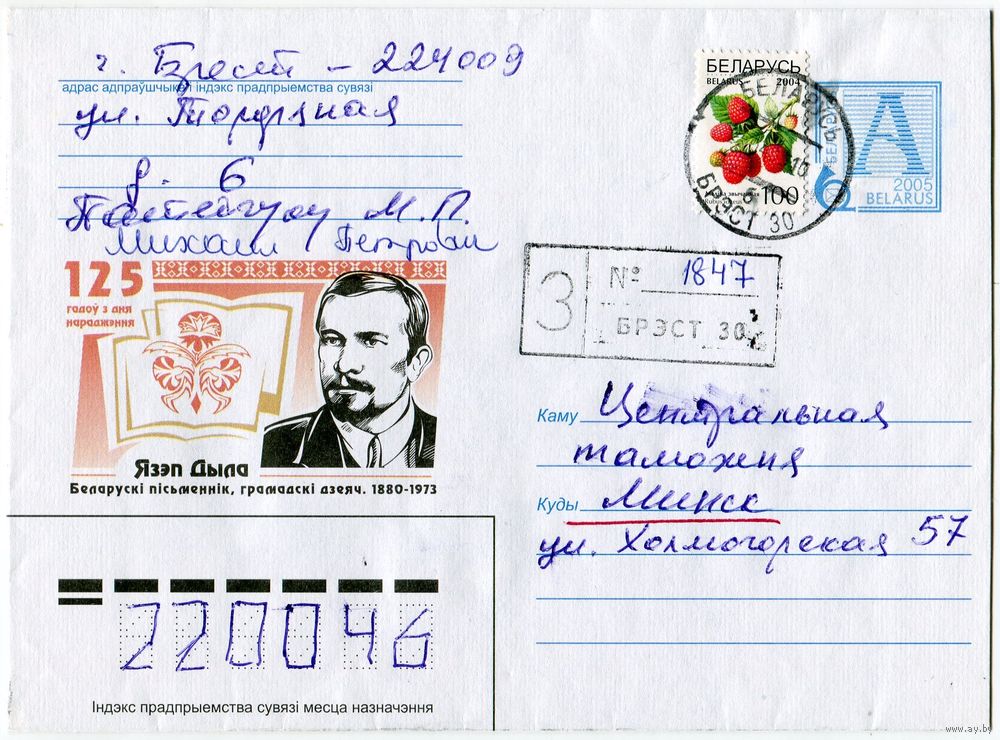 г. Брест - 224009
адрас адпраўшчыка і індэкс прадпрыемства сувязі
ул.
д. 6
М.П.
Михаил Петрович
БЕЛАРУСЬ
BELARUS 2004
100
БЕЛАРУСЬ
БРЭСТ 30
A
2005
BELARUS
З
№ 1847
БРЭСТ 30
125
гадоў з дня
нараджэння
Язэп Дыла
Беларускі пісьменнік, грамадскі дзеяч. 1880-1973
Каму Центральная
таможня
Куды Минск
ул. Холмогорская 57
220046
Індэкс прадпрыемства сувязі месца назначэння
www.ay.by